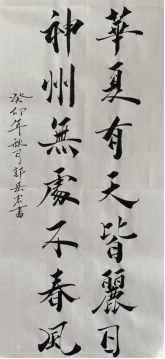 華夏有天皆麗日
神州無處不春風
癸卯年秋 郭 書